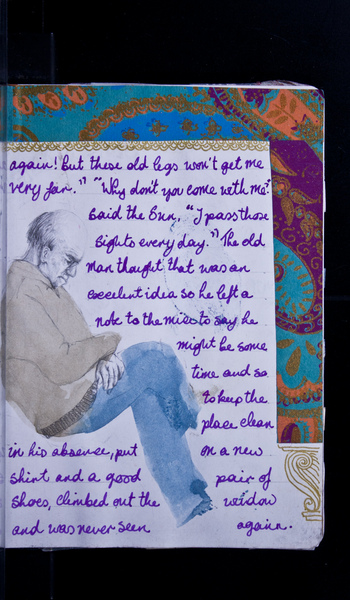 again! But these old legs won't get me
very far." "Why don't you come with me?"
Said the Sun. "I pass those
Sights every day." The old
man thought that was an
excellent idea so he left a
note to the mice to say he
might be some
time and so
to keep the
place clean
in his absence, put on a new
shirt and a good pair of
shoes, climbed out the widow
and was never seen again.